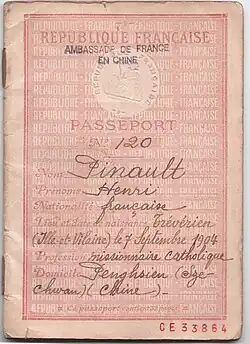 RÉPUBLIQUE FRANÇAISE
AMBASSADE DE FRANCE
EN CHINE
PASSEPORT
No 120
Nom Pinault
Prénoms Henri
Nationalité française
Lieu et date de naissance Trévérien
(Ille-et-Vilaine) le 7 Septembre 1904
Profession missionnaire catholique
Domicile Penghsien (Sze-
chwan) (Chine)
Ce passeport contient pages
CE33864